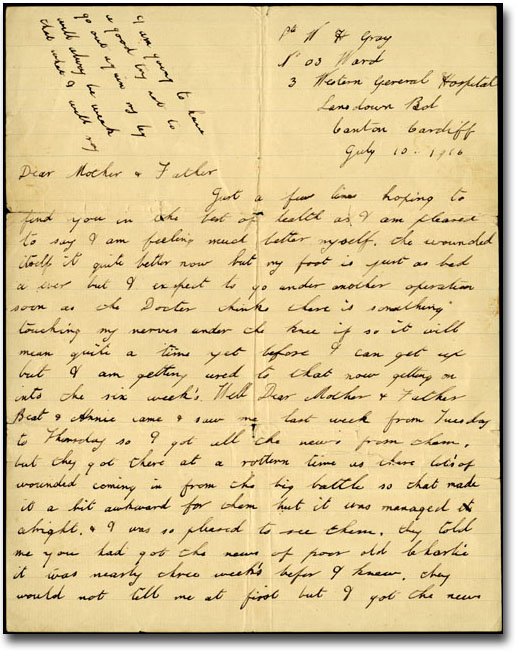 I am going to have
a good try not to
go out again my leg
will always be weak
that what I will say
Pte W H Gray
No 03 Ward
3 Western General Hospital
Lansdown Rd
Canton Cardiff
July 10 - 1916
Dear Mother & Father
Just a few lines hoping to
find you in the best of health as I am pleased
to say I am feeling much better myself, the wounded
itself it quite better now but my foot is just as bad
a ever but I expect to go under another operation
soon as the Docter thinks there is something
touching my nerves under the knee if so it will
mean quite a time yet before I can get up
but I am getting used to that now getting on
into the six week's. Well Dear Mother & Father
Beat & Annie came & saw me last week from Tuesday
to Thursday so I got all the news from them,
but they got there at a rottern time as there lots of
wounded coming in from the big battle so that made
it a bit awkward for them but it was managed
alright. & I was so pleased to see them, they told
me you had got the news of poor old Charlie
it was nearly three week's befor I knew, they
would not tell me at first but I got the news